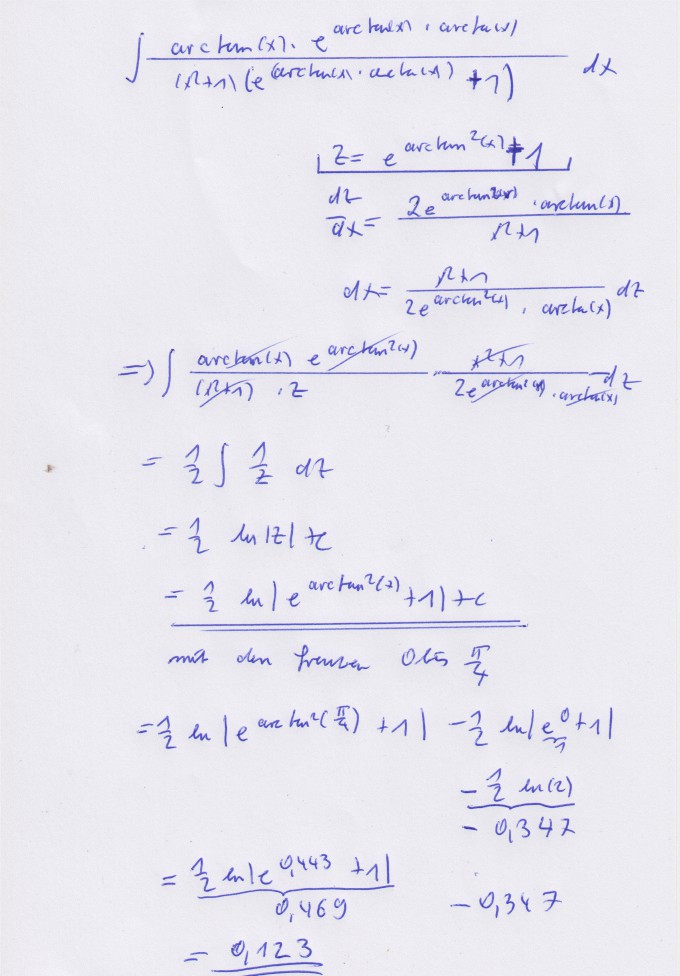 ∫ arctan(x) · e^(arctan(x) · arctan(x)) / ((x²+1)(e^(arctan(x) · arctan(x)) + 1)) dx
z = e^(arctan²(x)) + 1
dz/dx = 2e^(arctan²(x)) · arctan(x) / (x²+1)
dx = (x²+1) / (2e^(arctan²(x)) · arctan(x)) dz
=> ∫ arctan(x) e^(arctan²(x)) / ((x²+1) · z) · (x²+1) / (2e^(arctan²(x)) · arctan(x)) dz
= 1/2 ∫ 1/z dz
= 1/2 ln|z| + c
= 1/2 ln|e^(arctan²(x)) + 1| + c
mit den Grenzen 0 bis π/4
= 1/2 ln|e^(arctan²(π/4)) + 1| - 1/2 ln|e^0 + 1|
1
- 1/2 ln(2)
- 0,347
= 1/2 ln|e^(0,443) + 1|
0,469 - 0,347
= 0,123